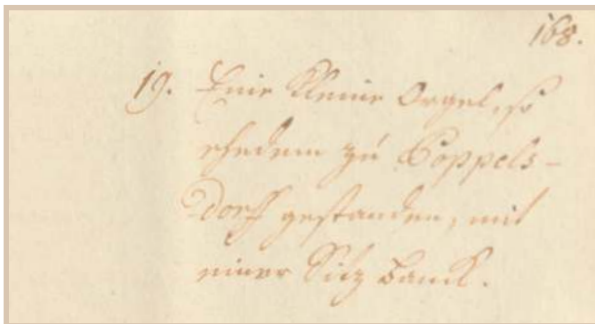 168.
19. Eine kleine Orgel, so
ehedem zu Poppels-
dorff gestanden, mit
einer Sitz Banck.